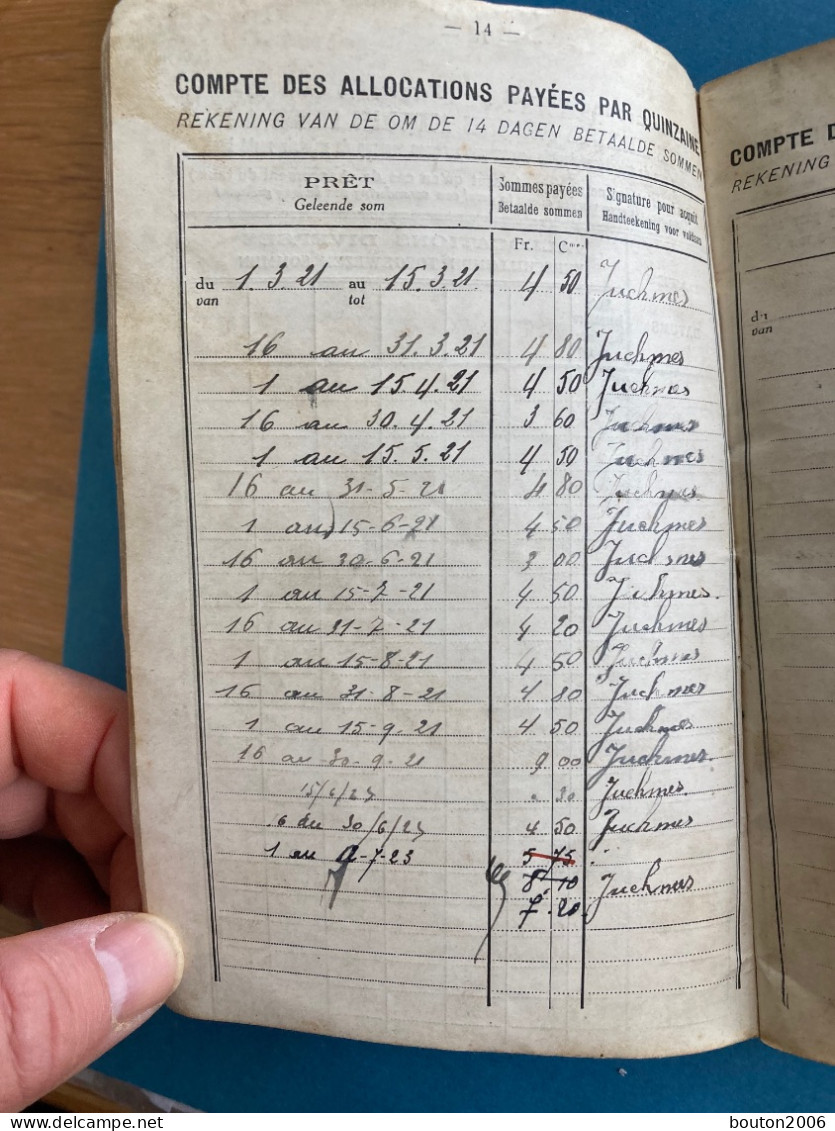 — 14 —
COMPTE DES ALLOCATIONS PAYÉES PAR QUINZAINE
REKENING VAN DE OM DE 14 DAGEN BETAALDE SOMMEN
PRÊT Sommes payées Signature pour acquit
Geleende som Betaalde sommen Handteekening voor voldaan
Fr. Cmes
du 1.3.21 au 15.3.21 4 50 Juchmes
van tot
16 au 31.3.21 4 80 Juchmes
1 au 15.4.21 4 50 Juchmes
16 au 30.4.21 3 60 Juchmes
1 au 15.5.21 4 50 Juchmes
16 au 31-5-21 4 80 Juchmes
1 au 15-6-21 4 50 Juchmes
16 au 30-6-21 3 00 Juchmes
1 au 15-7-21 4 50 Juchmes.
16 au 31-7-21 4 20 Juchmes
1 au 15-8-21 4 50 Juchmes
16 au 31-8-21 4 80 Juchmes
1 au 15-9-21 4 50 Juchmes
16 au 30-9-21 9 00 Juchmes.
15/6/23 30 Juchmes.
6 au 30/6/23 4 50 Juchmes
1 au 7-23 5 75
8 10 Juchmes
7.20
COMPTE D
REKENING
du
van
© delcampe.net / bouton2006